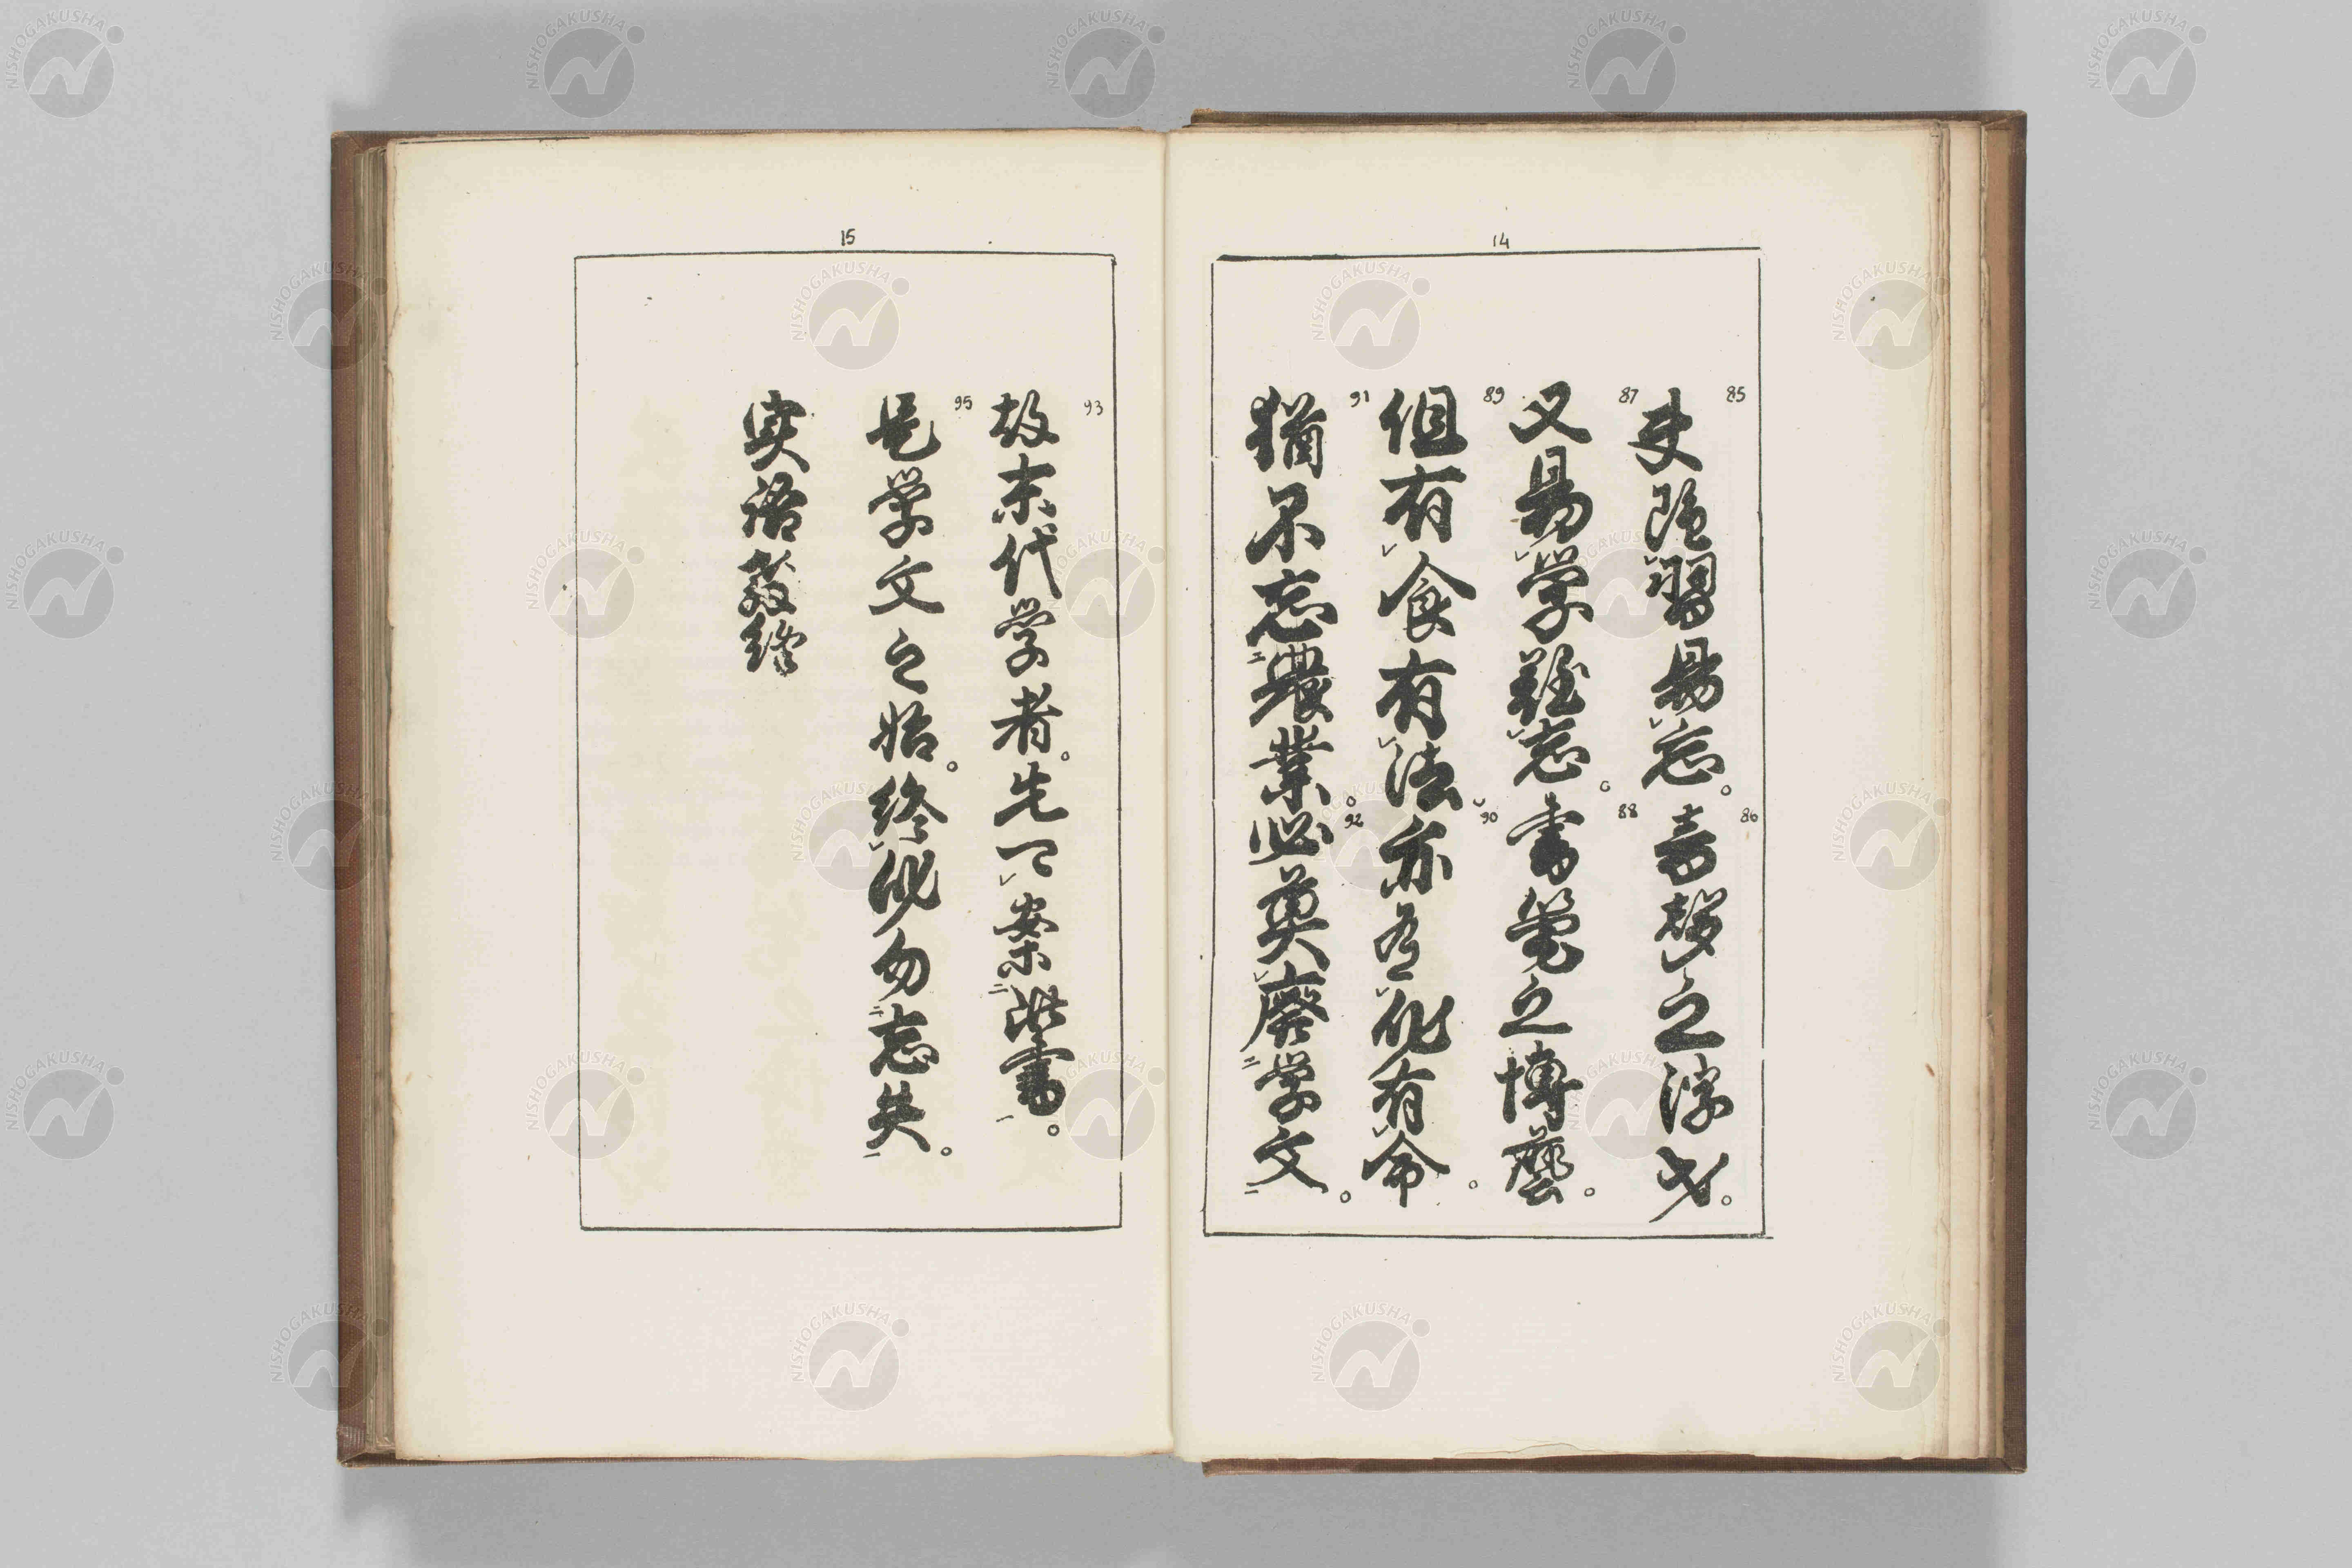 14
85 夫難習易忘。 86 音聲之浮才。
87 又易学難忘。 88 書筆之博藝。
89 但有食有法 90 亦有身有命。
91 猶不忘農業。 92 必莫廢学文。
15
93 故末代学者。先可案此書。
95 是学文之始。終身勿忘失。
実語教終
NISHOGAKUSHA